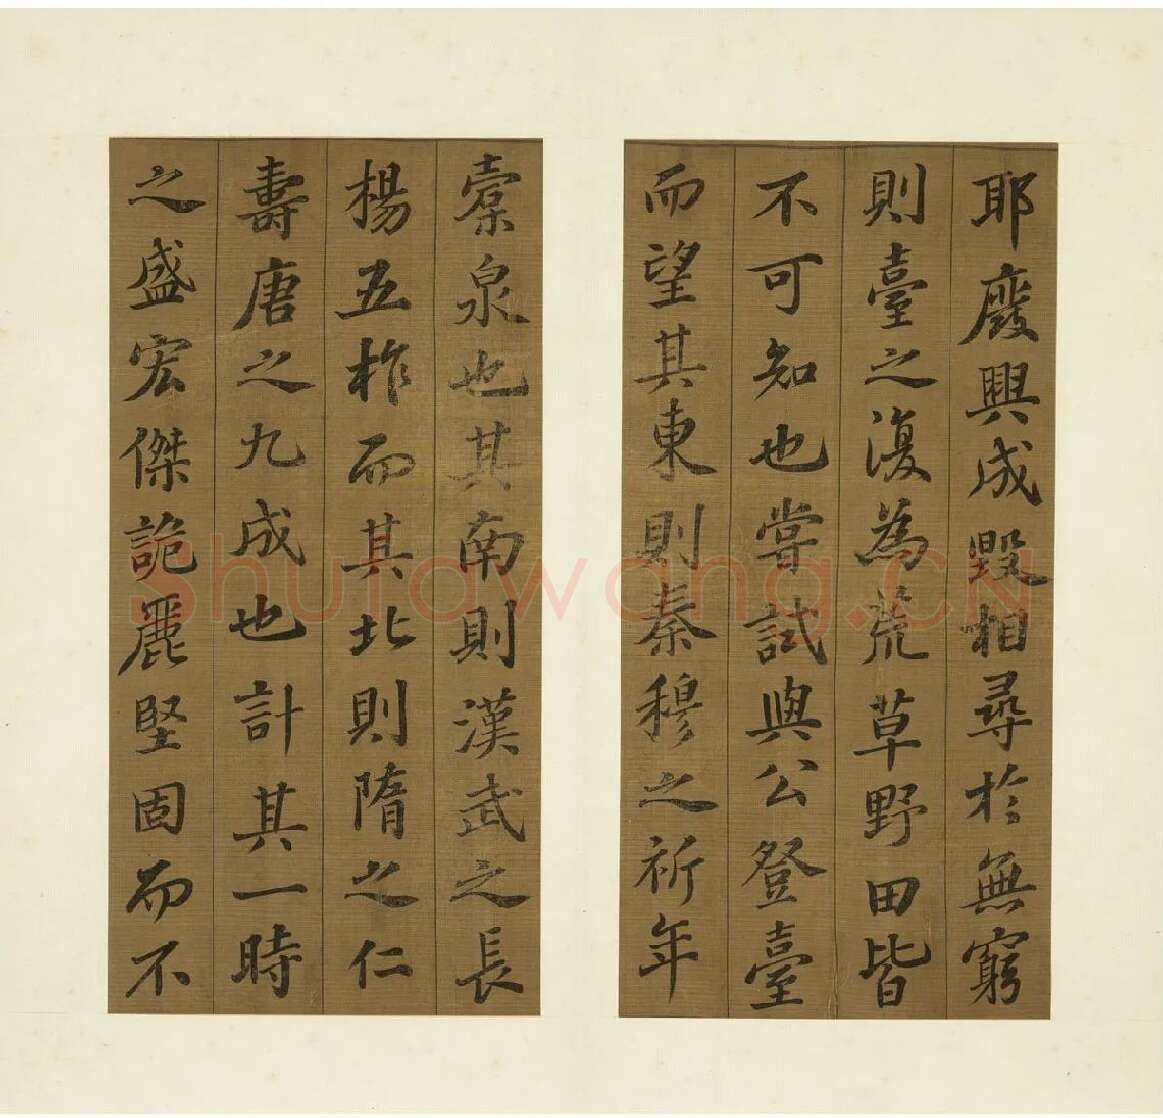 耶廢興成毀相尋於無窮
則臺之復為荒草野田皆
不可知也嘗試與公登臺
而望其東則秦穆之祈年
橐泉也其南則漢武之長
楊五柞而其北則隋之仁
壽唐之九成也計其一時
之盛宏傑詭麗堅固而不
Shufawang.CN